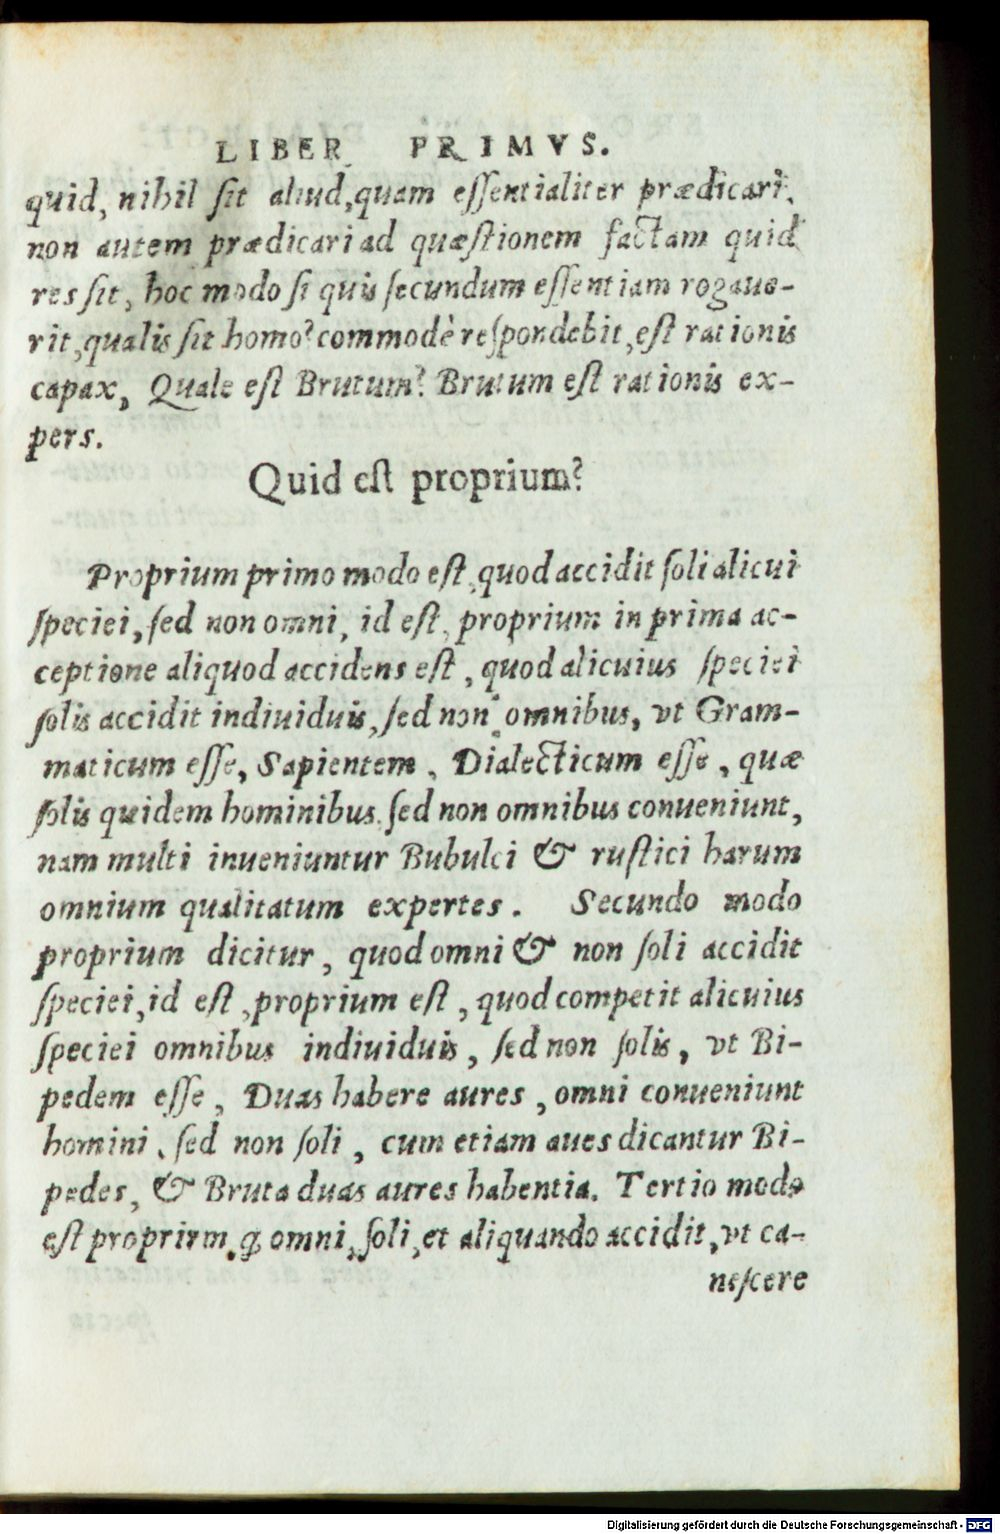 LIBER PRIMVS.
quid, nihil ſit aliud, quam eſſentialiter prædicari,
non autem prædicari ad quæſtionem factam quid
res ſit, hoc modo ſi quis ſecundum eſſentiam rogaue-
rit, qualis ſit homo? commodè reſpondebit, eſt rationis
capax, Quale eſt Brutum? Brutum eſt rationis ex-
pers.
Quid eſt proprium?
Proprium primo modo eſt, quod accidit ſoli alicui
ſpeciei, ſed non omni, id eſt, proprium in prima ac-
ceptione aliquod accidens eſt, quod alicuius ſpeciei
ſolis accidit indiuiduis, ſed non omnibus, vt Gram-
maticum eſſe, Sapientem, Dialecticum eſſe, quæ
ſolis quidem hominibus, ſed non omnibus conueniunt,
nam multi inueniuntur Bubulci & ruſtici harum
omnium qualitatum expertes. Secundo modo
proprium dicitur, quod omni & non ſoli accidit
ſpeciei, id eſt, proprium eſt, quod competit alicuius
ſpeciei omnibus indiuiduis, ſed non ſolis, vt Bi-
pedem eſſe, Duas habere aures, omni conueniunt
homini, ſed non ſoli, cum etiam aues dicantur Bi-
pedes, & Bruta duas aures habentia. Tertio modo
eſt proprium, ꝙ omni, ſoli, et aliquando accidit, vt ca-
neſcere
Digitalisierung gefördert durch die Deutsche Forschungsgemeinschaft - DFG